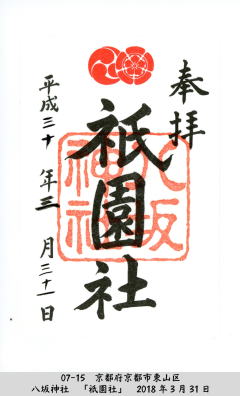 奉拝
祇園社
八坂神社
平成三十年三月三十一日
07-15 京都府京都市東山区
八坂神社 「祇園社」 2018年3月31日